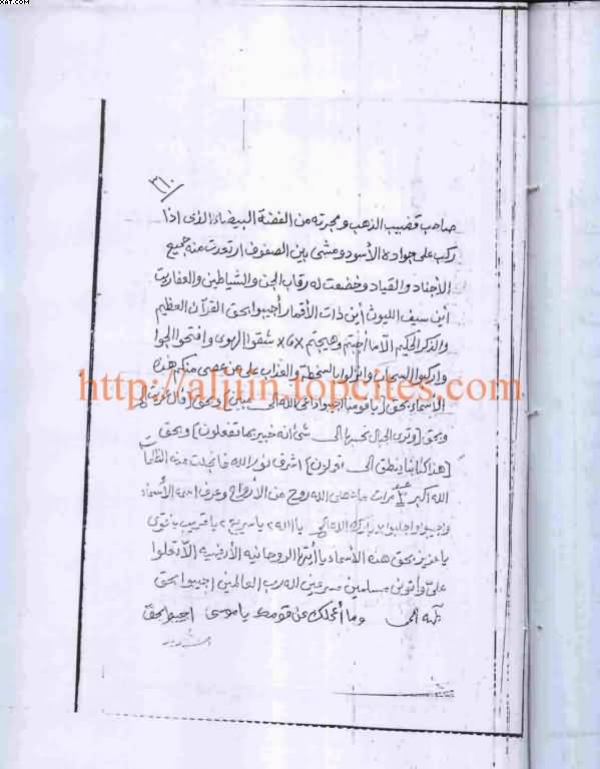 XAT.COM
٣٦٠
صاحب قضيب الذهب ومجرته من الفضة البيضاء الذى اذا
ركب على جواده الأسود ومشى بين الصفوف ارتعدت منه جميع
الأجناد والقياد وخضعت له رقاب الجن والشياطين والعفاريت
اين سيف الليوث أين ذات الأقمار أجيبوا بحق القرآن العظيم
والذكر الحكيم الا ما اجبتم وهيجتم شقوا الهوى وافتحوا الجوا
واركبوا السحاب وانزلوا بالسخط والعذاب على من عصى منكم هذه
http://aljiin.topcites.com
الاسماء بحق [ياقومنا اجيبوا داعى الله الى مبين] وبحق
وبحق [وترى الجبال تحسبها الى شئ انه خبير بما تفعلون] وبحق
[هذا كتابنا ينطق الى] اشرق نور الله فانجلت منه الظلمات
الله اكبر مرات ما عصى الله روح من الأرواح وعرف اسمه الأسماء
واجيبوا الى يا الله ٢ يا سريع ٢ يا قريب يا قوى
يا عزيز بحق هذه الأسماء يا أيتها الروحانيه الأرضيه ألا تعلوا
على وأتونى مسلمين مسرعين لله رب العالمين اجيبوا بحق
الى وما أعجلك عن قومك ياموسى اجيبوا بحق